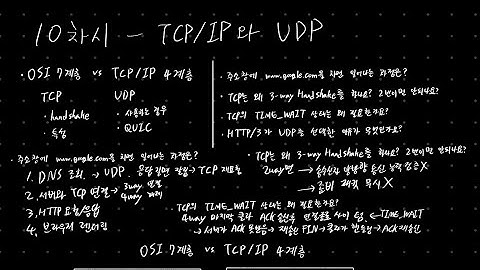 10차시 - TCP/IP와 UDP
· OSI 7계층 vs TCP/IP 4계층
TCP UDP
· handshake · 사용하는 경우
· 특성 · QUIC
· 주소창에 www.google.com을 치면 일어나는 과정은?
· TCP는 왜 3-way Handshake를 하나요? 2번이면 안되나요?
· TCP의 TIME_WAIT 상태는 왜 필요한가요?
· HTTP/3가 UDP를 선택한 이유가 무엇인가요?
· 주소창에 www.google.com을 치면 일어나는 과정은?
1. DNS 조회 → UDP. 응답 길면 잘림 → TCP 재요청
2. 서버와 TCP 연결 → 3way 연결
4way
3. HTTP 요청/응답
4. 브라우저 렌더링
· TCP는 왜 3-way Handshake를 하나요? 2번이면 안되나요?
2way면 → 송수신 양방향 통신 능력 검증 X
→ 중복 패킷 무시 X
· TCP의 TIME_WAIT 상태는 왜 필요한가요?
4way 마지막 클라 ACK 송신 후 연결종료 사이 텀 ← TIME_WAIT
→ 서버가 ACK 못받음 → 재송신 FIN → 클라가 ACK 재송신
OSI 7계층 vs TCP/IP 4계층